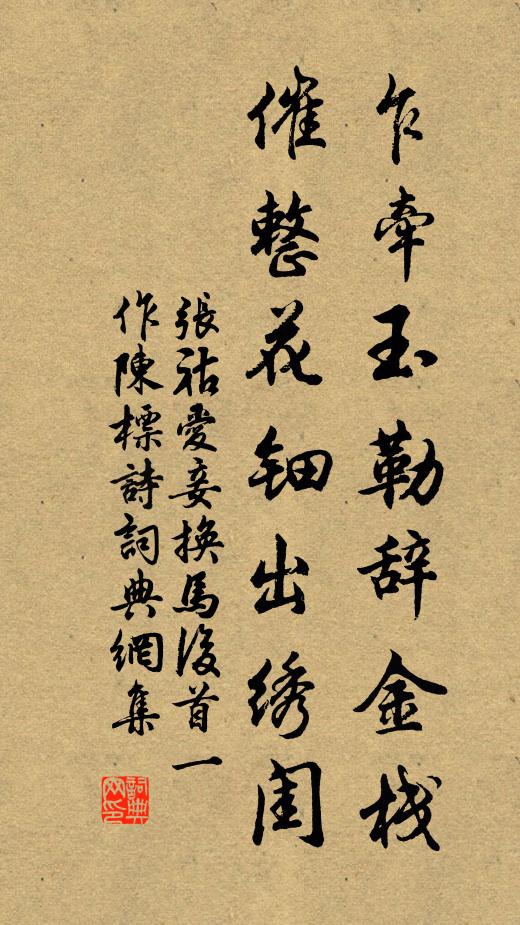 乍牵玉勒辞金栈
催整花钿出绣闺
張祜愛妾換馬後首一
作陳標詩詞典網集
詞典网印